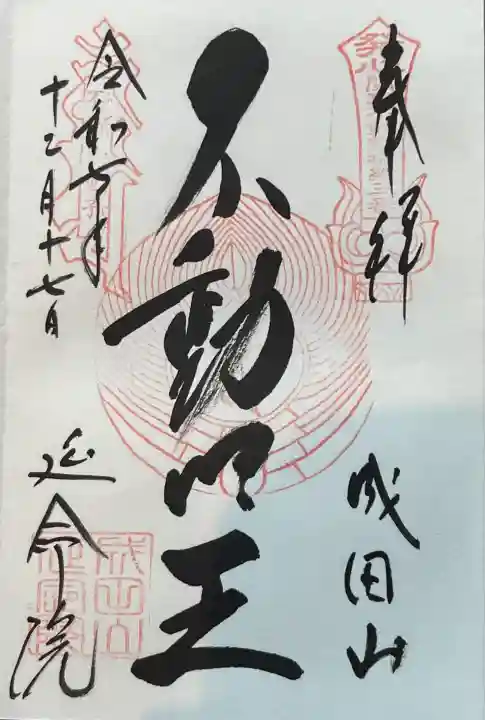 奉拝
成田山
不動明王
令和六年
十二月十七日
延命院
成田山